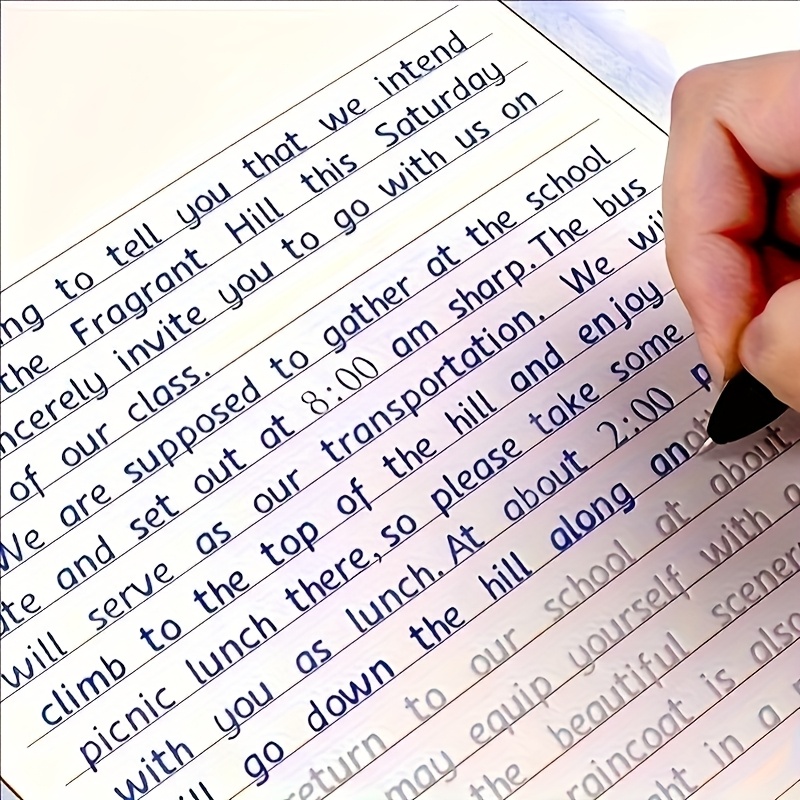 ng to tell you that we intend
the Fragrant Hill this Saturday
ncerely invite you to go with us on
of our class.
We are supposed to gather at the school
te and set out at 8:00 am sharp.The bus
will serve as our transportation. We wil
climb to the top of the hill and enjoy
picnic lunch there,so please take some
with you as lunch.At about 2:00 p
ill go down the hill along anoth
return to our school at about
may equip yourself with a
the beautiful scenery
raincoat is also
ght in a